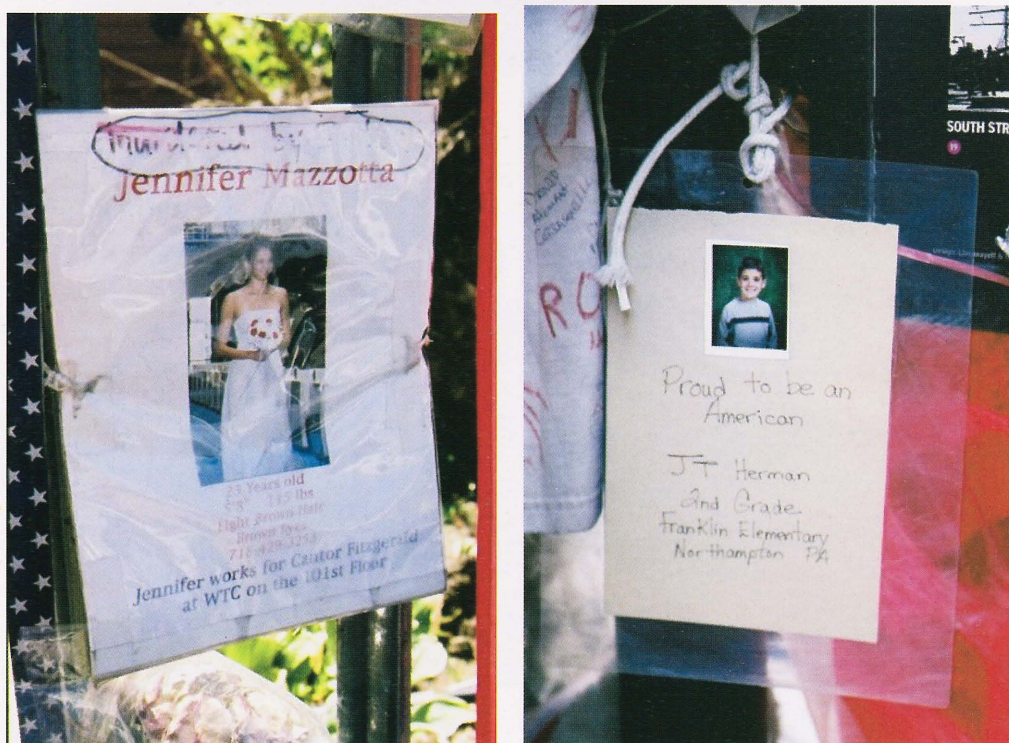 Murdered by
Jennifer Mazzotta
23 Years old
5'8" 115 lbs
Light Brown Hair
Brown Eyes
Jennifer works for Cantor Fitzgerald
at WTC on the 101st Floor
SOUTH STR
19
RO
Proud to be an
American
JT Herman
2nd Grade
Franklin Elementary
Northampton PA